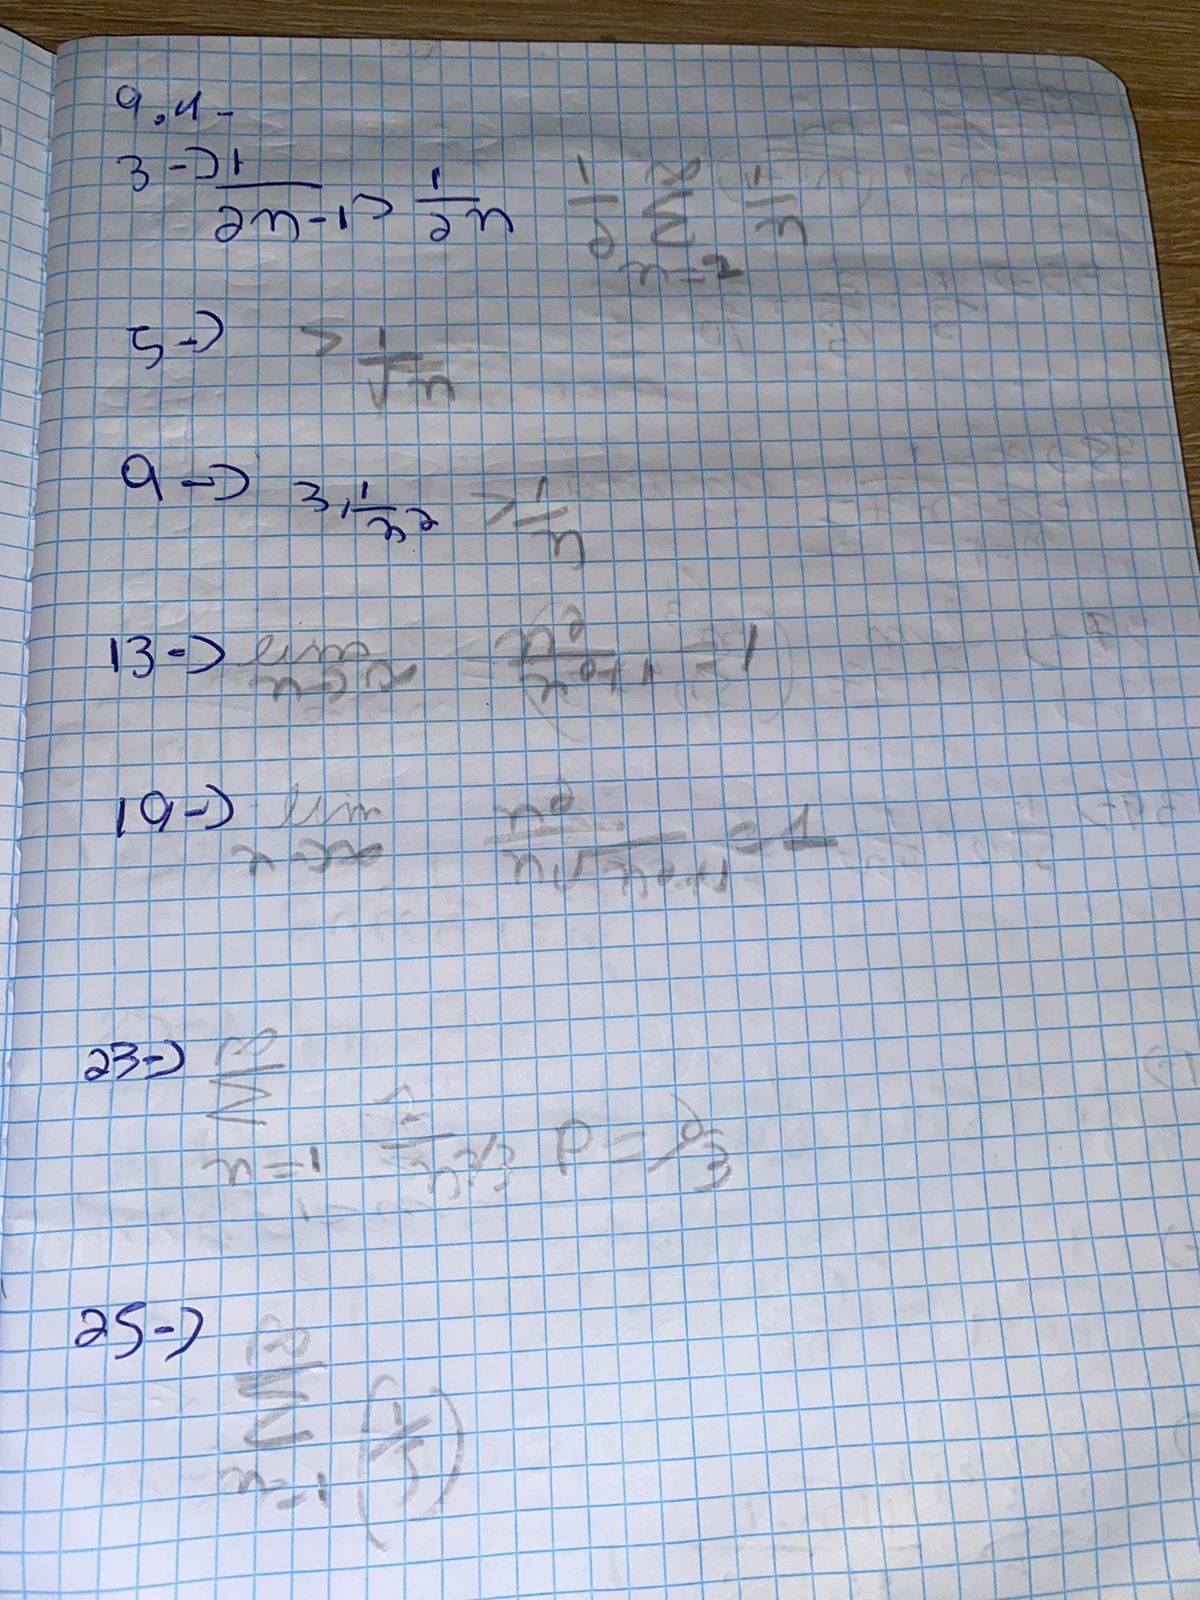 9.4-
3 -> 1/(2n-1) > 1/(2n) 1/2 ∑ n=2 ∞ 1/n
5 -> > 1/√n
9 -> 3, 1/n² > 1/n
13 -> lim n->∞ n²/(n²+1) = 1
19 -> lim n->∞ n²/(n√(n²+1)) = 1
23 -> ∑ n=1 ∞ 1/n^2/3 P = 2/3
25 -> ∑ n=1 ∞ (1/5)